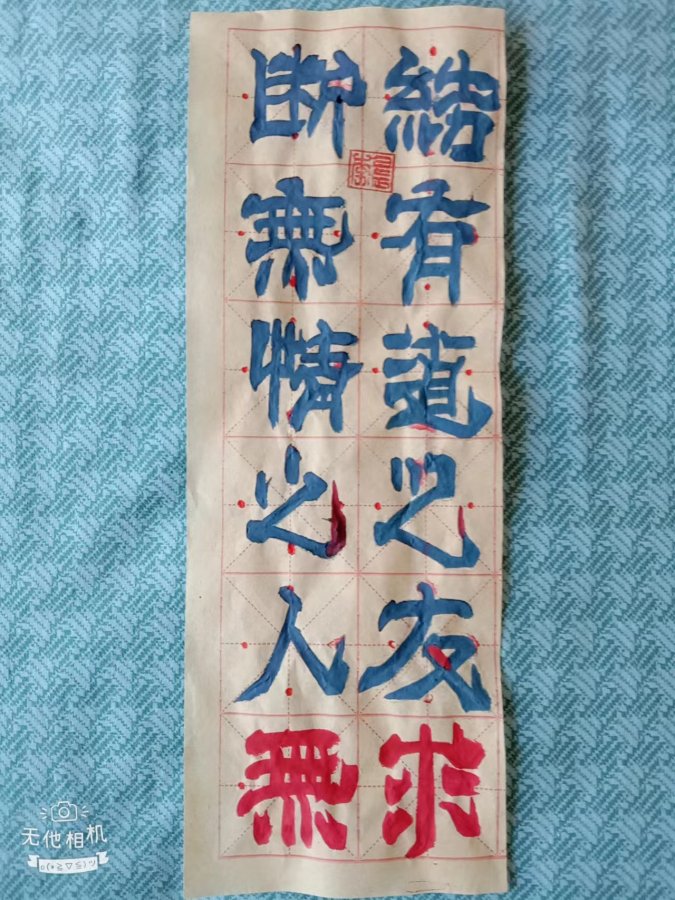 結有道之友求
断無情之人無
无他相机
o(*≧▽≦)ツ